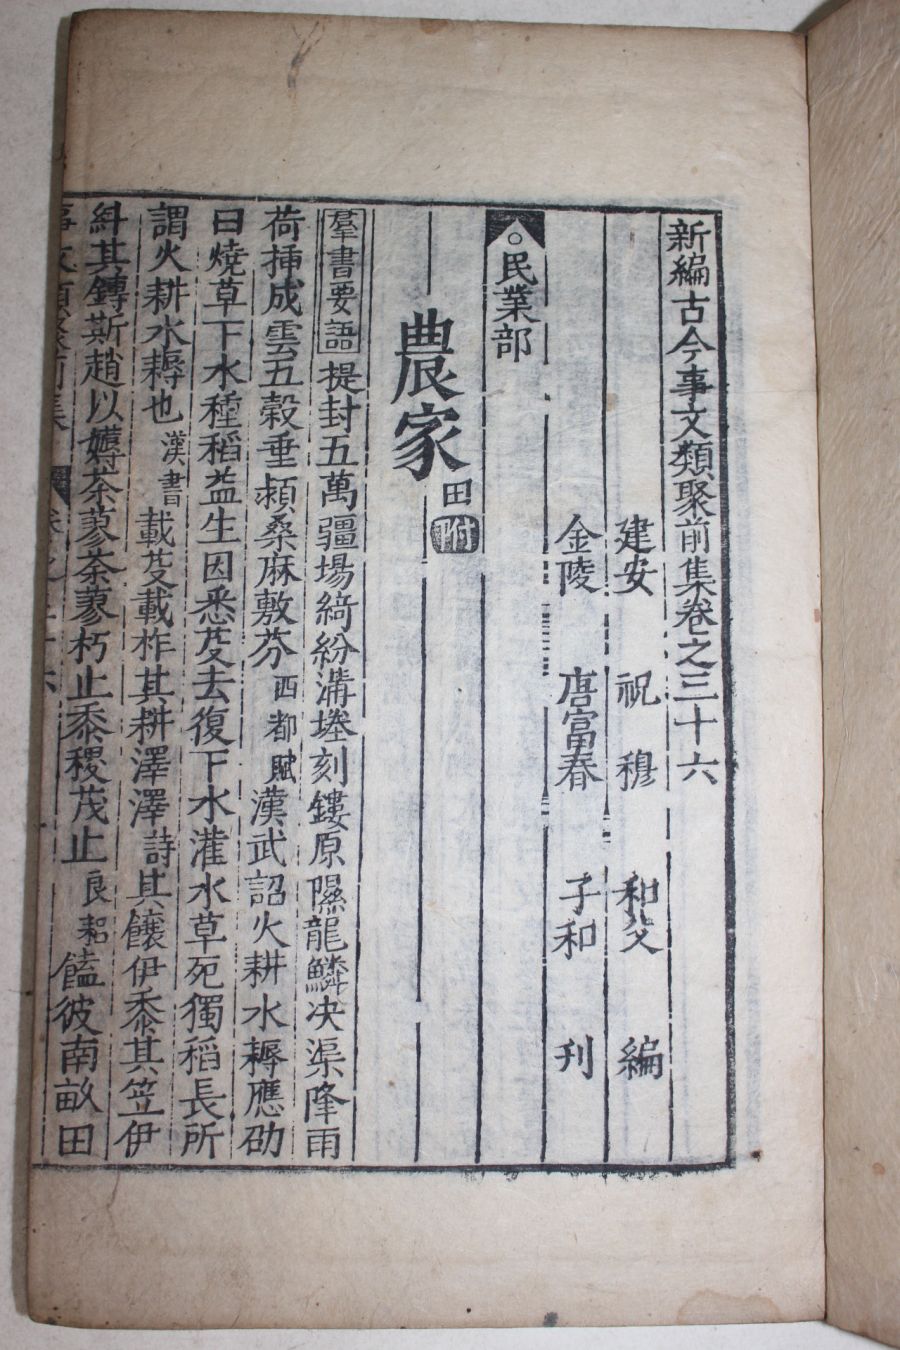 新編古今事文類聚前集卷之三十六
建安 祝 穆 和父 編
金陵 唐富春 子和 刊
○民業部
農家 田附
羣書要語 提封五萬疆場綺紛溝塍刻鏤原隰龍鱗决渠降雨
荷揷成雲五穀垂頴桑麻敷芬 西都賦 漢武詔火耕水耨應劭
曰燒草下水種稻益生因悉芟去復下水灌水草死獨稻長所
謂火耕水耨也 漢書 載芟載柞其耕澤澤 詩 其饟伊黍其笠伊
糾其鎛斯趙以薅荼蓼荼蓼朽止黍稷茂止 良耜 饁彼南畝田